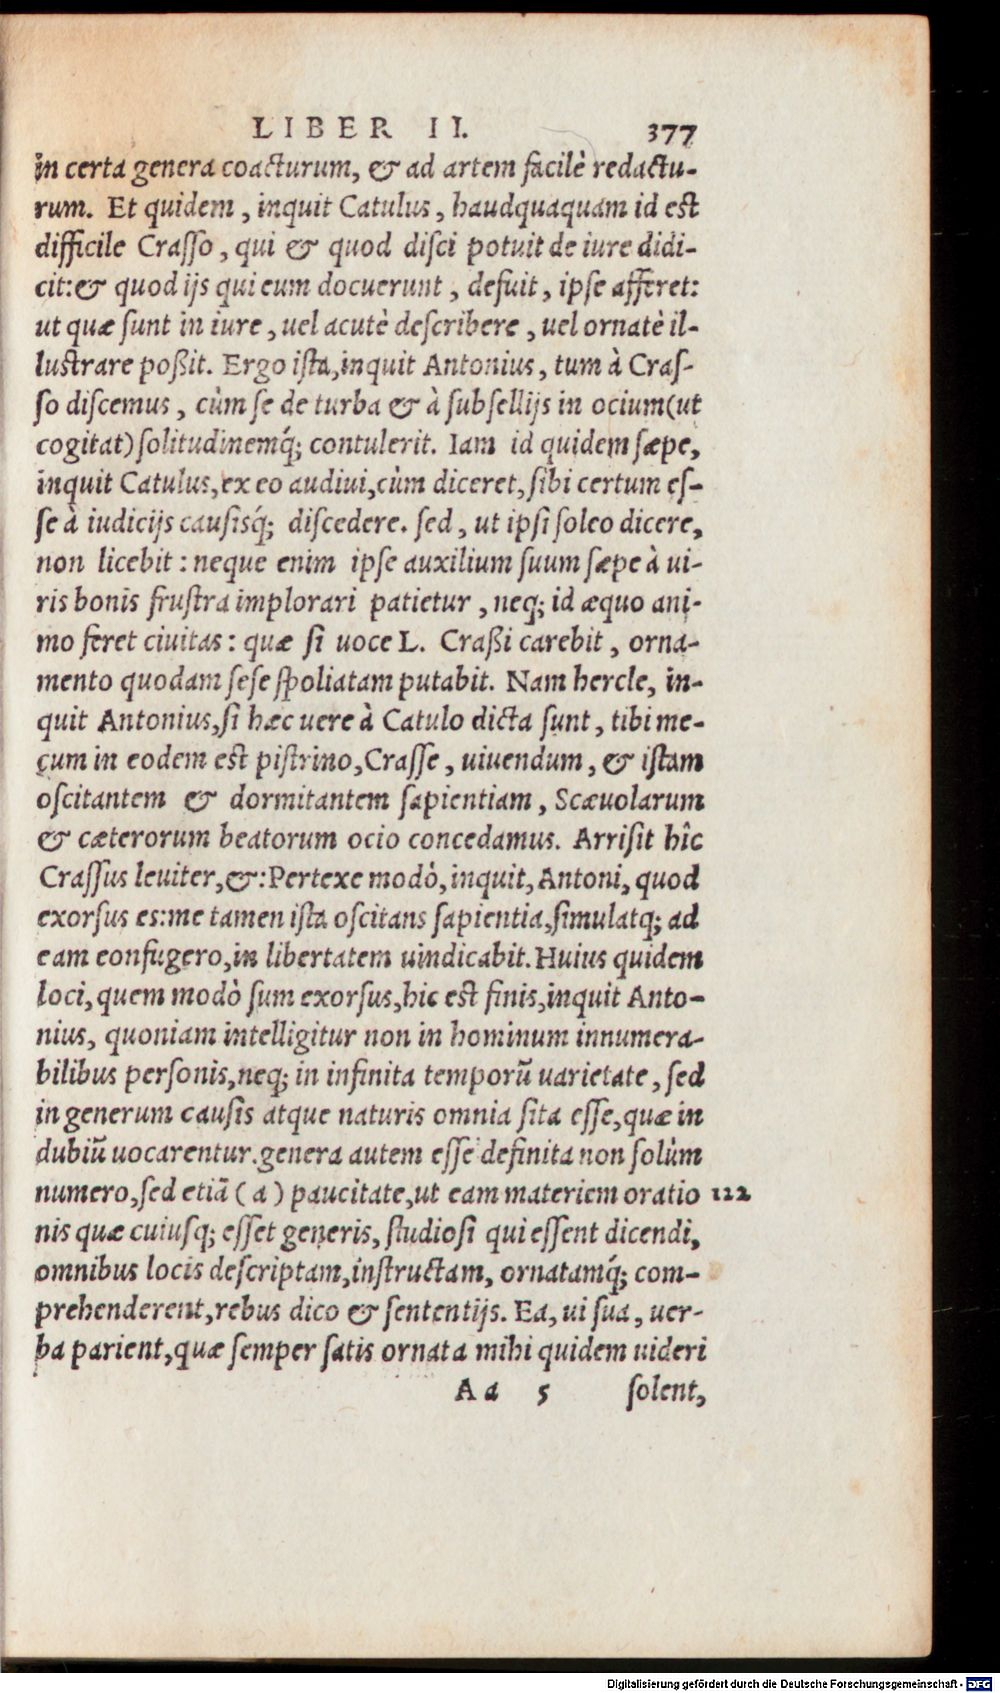 LIBER II. 377
in certa genera coacturum, & ad artem facilè redactu-
rum. Et quidem, inquit Catulus, haudquaquam id est
difficile Crasso, qui & quod disci potuit de iure didi-
cit: & quod ijs qui eum docuerunt, defuit, ipse afferet:
ut quæ sunt in iure, uel acutè describere, uel ornatè il-
lustrare poßit. Ergo ista, inquit Antonius, tum à Cras-
so discemus, cùm se de turba & à subsellijs in ocium (ut
cogitat) solitudinemq́; contulerit. Iam id quidem sæpe,
inquit Catulus, ex eo audiui, cùm diceret, sibi certum es-
se à iudicijs causisq́; discedere. sed, ut ipsi soleo dicere,
non licebit: neque enim ipse auxilium suum sæpe à ui-
ris bonis frustra implorari patietur, neq; id æquo ani-
mo feret ciuitas: quæ si uoce L. Craßi carebit, orna-
mento quodam sese spoliatam putabit. Nam hercle, in-
quit Antonius, si hæc uere à Catulo dicta sunt, tibi me-
cum in eodem est pistrino, Crasse, uiuendum, & istam
oscitantem & dormitantem sapientiam, Scæuolarum
& cæterorum beatorum ocio concedamus. Arrisit hîc
Crassus leuiter, &: Pertexe modò, inquit, Antoni, quod
exorsus es: me tamen ista oscitans sapientia, simulatq; ad
eam confugero, in libertatem uindicabit. Huius quidem
loci, quem modò sum exorsus, hic est finis, inquit Anto-
nius, quoniam intelligitur non in hominum innumera-
bilibus personis, neq; in infinita temporũ uarietate, sed
in generum causis atque naturis omnia sita esse, quæ in
dubiũ uocarentur. genera autem esse definita non solùm
numero, sed etiã (a) paucitate, ut eam materiem oratio 122
nis quæ cuiusq; esset generis, studiosi qui essent dicendi,
omnibus locis descriptam, instructam, ornatamq́; com-
prehenderent, rebus dico & sententijs. Ea, ui sua, uer-
ba parient, quæ semper satis ornata mihi quidem uideri
Aa 5 solent,
Digitalisierung gefördert durch die Deutsche Forschungsgemeinschaft - DFG